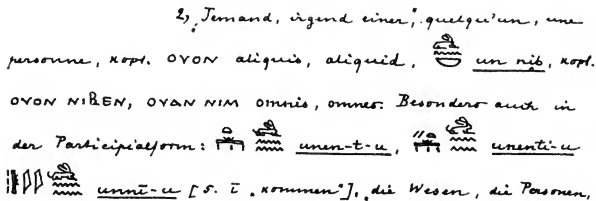 2, „Jemand, irgend einer“, quelqu'un, une
personne, kopt. ⲞⲨⲞⲚ aliquis, aliquid, un nib, kopt.
ⲞⲨⲞⲚ ⲚⲒⲂⲈⲚ, ⲞⲨⲀⲚ ⲚⲒⲘ omnis, omnes. Besonders auch in
der Participialform: unen-t-u, unenti-u
unnī-u [s. ī „kommen“], die Wesen, die Personen,